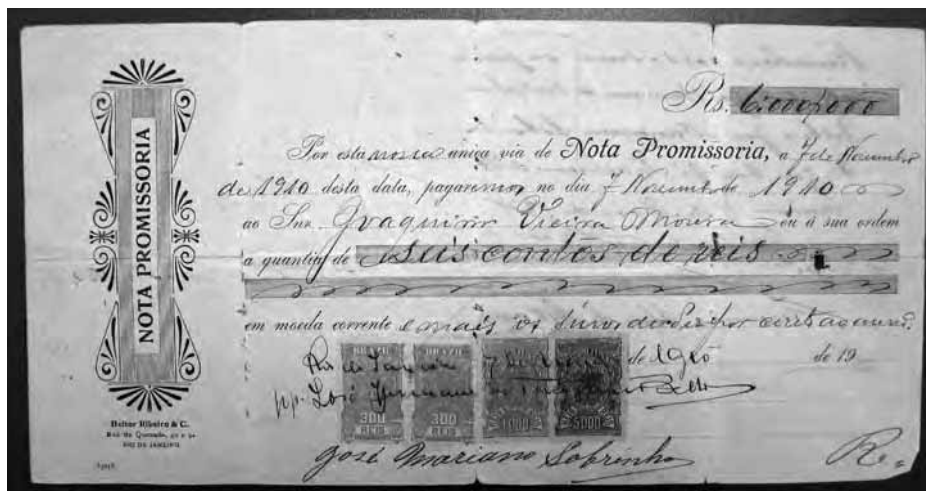 NOTA PROMISSORIA
Heitor Ribeiro & C.
Rua da Quitanda,
RIO DE JANEIRO
Rs. 6:000$000
Por esta nossa unica via de Nota Promissoria, a 7 de Novembro
de 1910 desta data, pagaremos no dia 7 Novembro de 1910
ao Snr. Joaquim Vieira Moura ou à sua ordem
a quantia de seis contos de reis
em moeda corrente e mais os juros de por cento ao anno.
Rio de Janeiro 7 de de 1910 de 19
pp. José
BRAZIL
300
REIS
BRAZIL
300
REIS
1000
5000
José Mariano Sobrinho
Rs.